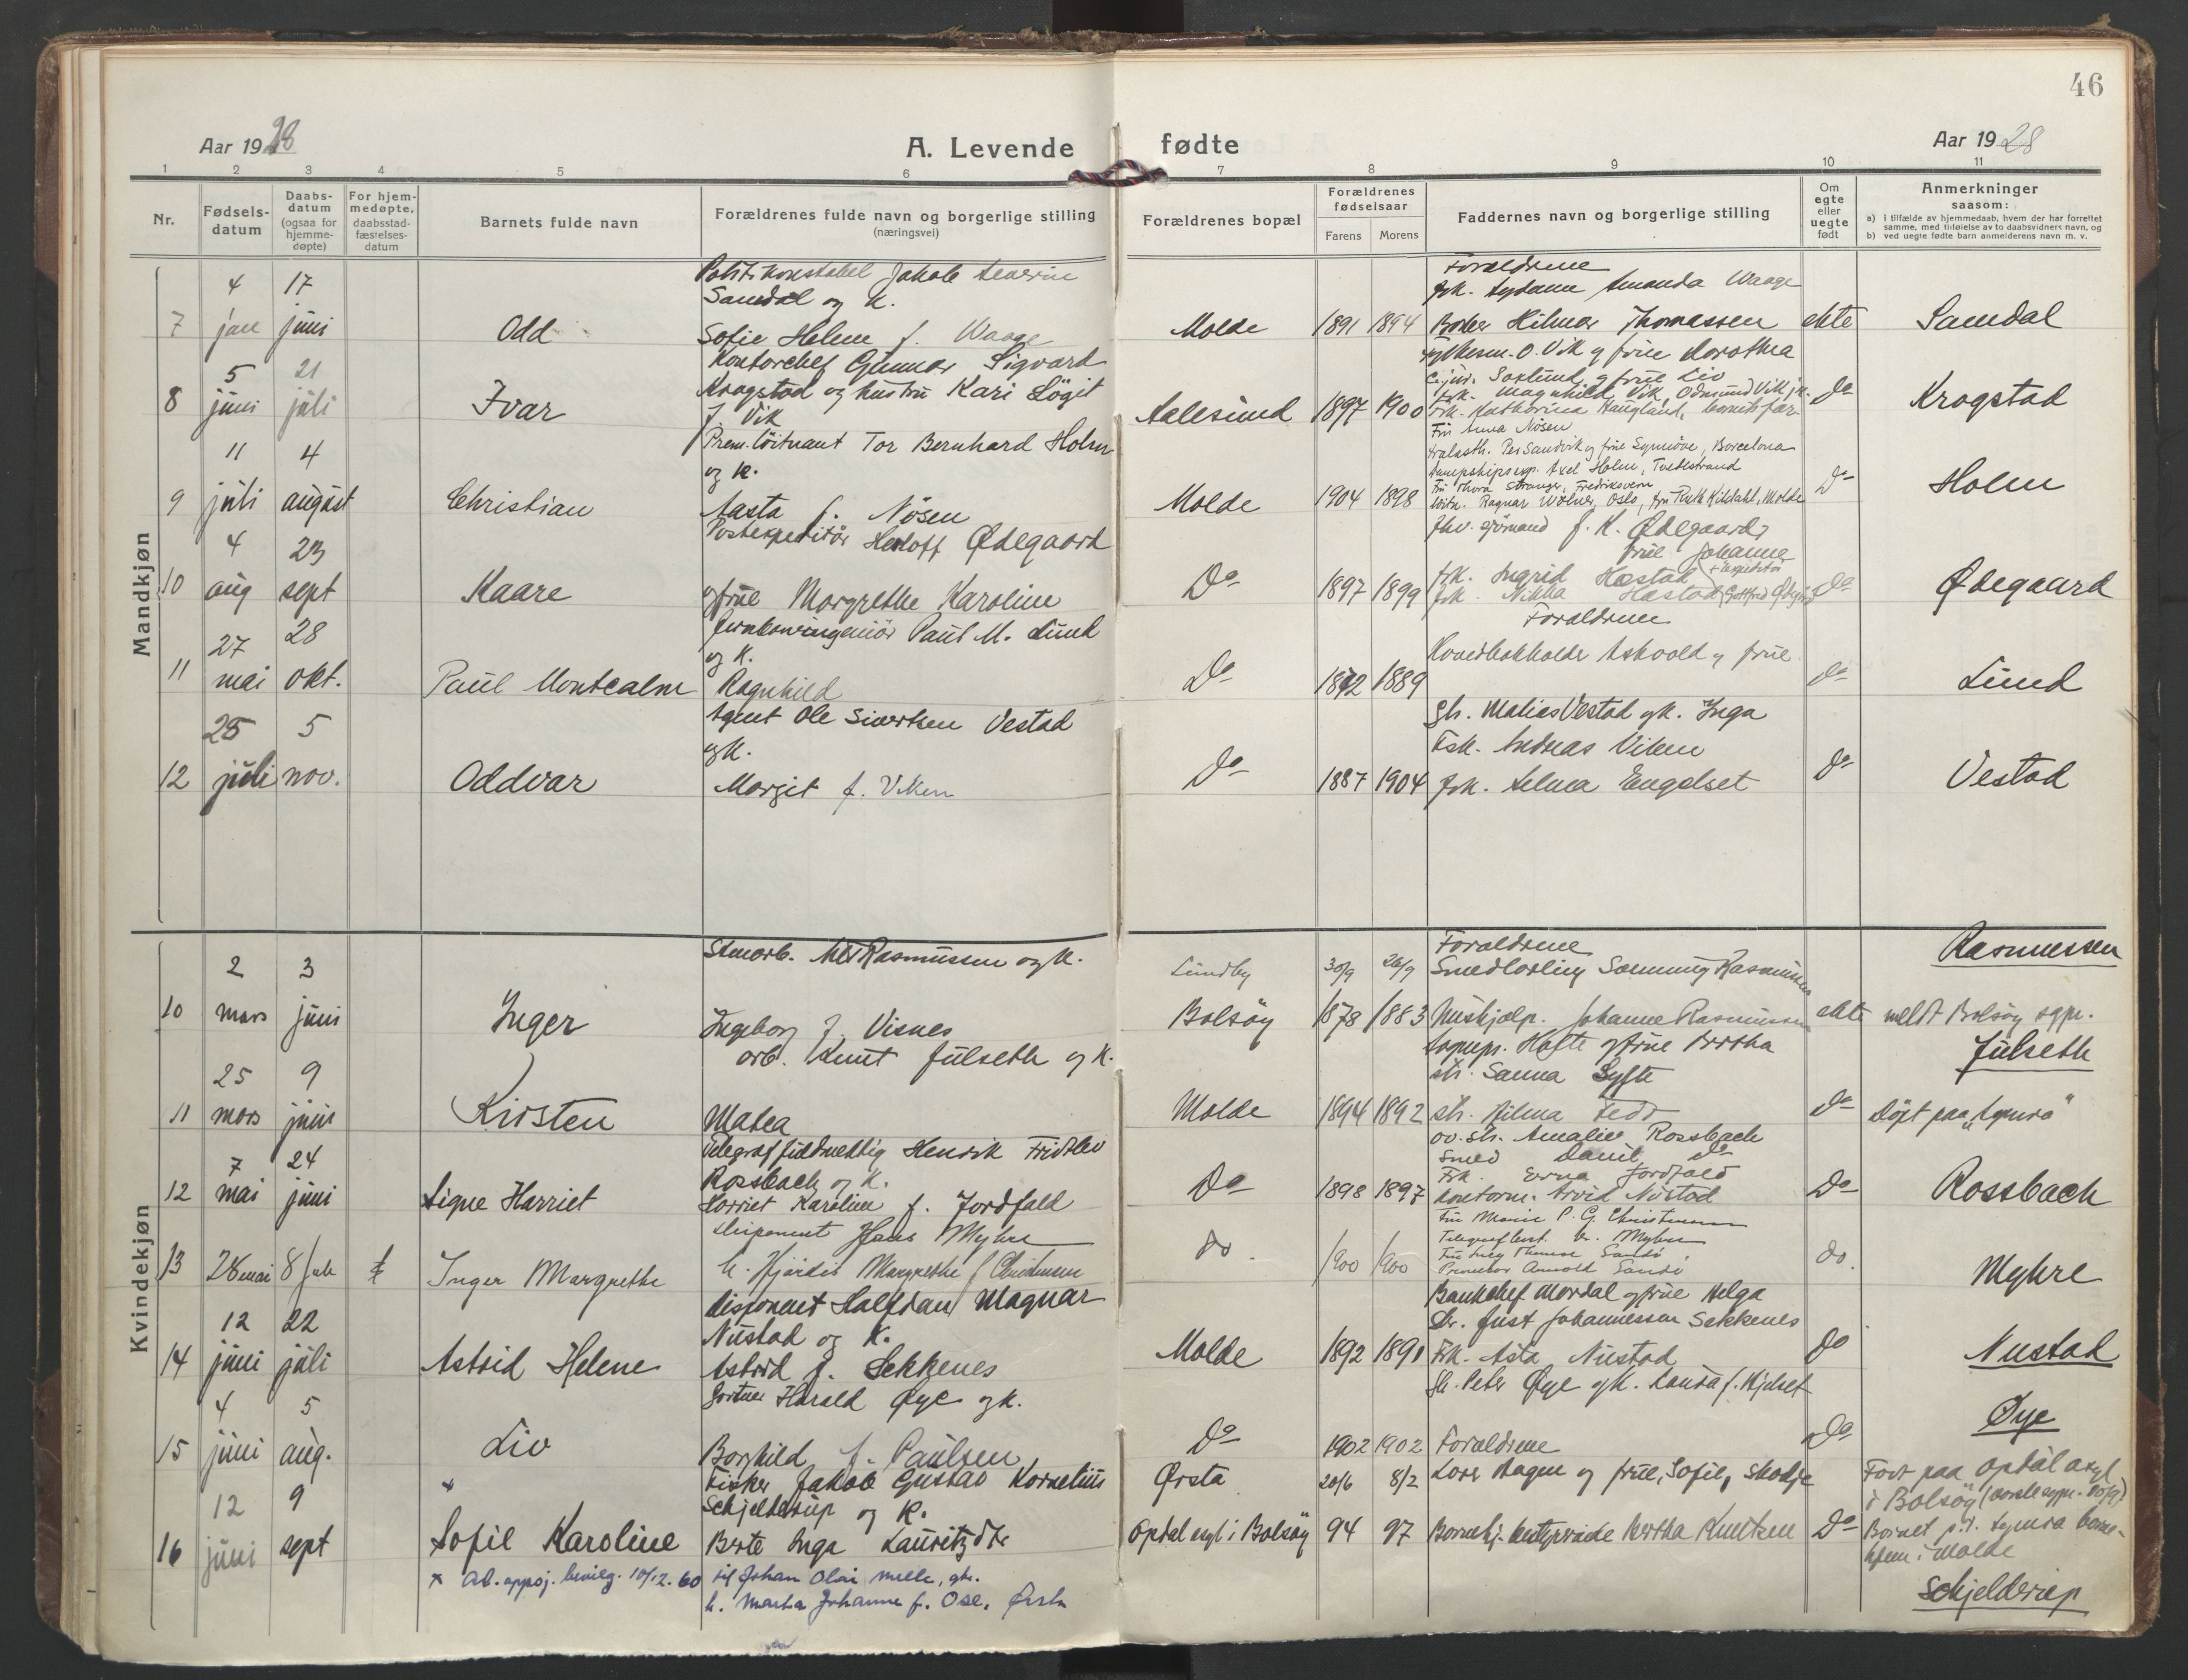 46
Aar 1928
A. Levende fødte
Aar 1928
1 2 3 4 5 6 7 8 9 10 11
Nr.
Fødsels-
datum
Daabs-
datum
(ogsaa for
hjemme-
døpte)
For hjem-
medøpte,
daabsstad-
fæstelses-
datum
Barnets fulde navn
Forældrenes fulde navn og borgerlige stilling
(næringsvei)
Forældrenes bopæl
Forældrenes
fødselsaar
Farens Morens
Faddernes navn og borgerlige stilling
Om
egte
eller
uegte
født
Anmerkninger
saasom:
a) i tilfælde av hjemmedaab, hvem der har forrettet
samme, med tilføielse av to daabsvidners navn, og
b) ved uegte fødte barn anmelderens navn m. v.
Mandkjøn
7
4
jan
17
juni
Odd
Politikonstabel Jakob Severin
Samdal og k.
Sofie Helene f. Waage
Molde
1891 1894
Forældrene
frk. Amanda Waage
Hilmar Thomassen
ekte
Samdal
8
5
juni
21
juli
Ivar
Kontorchef Gunnar Sigvard
Krogstad og hustru Kari Løgit
f. Vik
Aalesund
1897 1900
O. Vik og frue Dorothea
Soxlund og frue Liv
frk. Magnhild Vik, Odmund Vik jr.
frk. Kathorina Haugland, barnets far
Do
Krogstad
9
11
juli
4
august
Christian
Prem. løitnant Tor Bernhard Holm
og k.
Aasta f. Nøsen
Molde
1904 1898
Fru Anna Nøsen
Per Sandvik og frue Synnøve, Barcelona
Axel Holm, Tvedestrand
Fru Thora Stranger, Fredriksvern
løitn. Ragnar Wølner, Oslo, fru Ruth Kildahl, Molde
Do
Holm
10
4
aug
23
sept
Kaare
Postexpeditør Herloff Ødegaard
og frue Margrethe Karoline
Do
1897 1899
fhv. sjømand J. K. Ødegaard,
frue Johanne
frk. Ingrid Hæstad
frk. Nikka Hæstad
Do
Ødegaard
11
27
mai
28
okt.
Paul Montcalm
Paul M. Lund
og k.
Ragnhild
Do
1872 1889
Forældrene
Hovedbokholder Askvold og frue
do
Lund
12
25
juli
5
nov.
Oddvar
Agent Ole Sivertsen Vestad
og k.
Margit f. Viken
Do
1887 1904
Gb. Matias Vestad og k. Inga
Fsk. Andreas Viken
frk. Selma Engelset
Do
Vestad
Kvindekjøn
10
2
mars
3
juni
Inger
Stenarb. Rasmussen og k.
Ingeborg f. Visnes
Lundby
Bolsøy
30/9 26/9
1878 1883
Forældrene
Smedlærling Rasmussen
Hushjælp. Johanne Rasmussen
ekte
Rasmussen
meldt Bolsøy sgpr.
11
25
mars
9
juni
Kirsten
arb. Knut Julseth og k.
Matea
Molde
1894 1892
Hofte og frue Bertha
str. Sanna Syfte
str. Hilma
Do
Julseth
døpt paa "Symra"
12
7
mai
24
juni
Signe Harriet
Henrik Fridtlev
Rossbach og k.
Harriet Karoline f. Jordfald
Do
1898 1897
ov. str. Amalie Rossbach
Smed Daniel do
Frk. Erna Jordfald
kontorm. Arvid Nustad
Do
Rossbach
13
28 mai
8 juli
Inger Margrethe
Disponent Hans Myhre
h. Hjørdis Margrethe f. Christensen
do.
1900 1900
Fru Marie P. G. Christensen
Myhre
Arnold Sandø
do.
Myhre
14
12
juni
22
juli
Astrid Helene
disponent Halfdan Magnar
Nustad og k.
Astrid f. Sekkenes
Molde
1892 1891
Bankchef Mordal og frue Helga
Just Johannessen Sekkenes
Frk. Asta Nustad
Do
Nustad
15
4
juni
5
aug.
Liv
Gartner Harald Øye og k.
Borghild f. Paulsen
Do
1902 1902
Gb. Peter Øye og k. Laura f. Hjelset
Forældrene
Do
Øye
16
12
juni
9
sept
x
Sofie Karoline
Fisker Jakob Gustav Kornelius
Schjelderup og k.
Berte Inga Lauritzdtr
Ørsta
Opdal asyl i Bolsøy
20/6 8/2
94 97
Hagen og frue, Sofie, Skodje
Barnehj. bestyrerinde Bertha Knutsen
Do
Født paa Opdal asyl
i Bolsøy
Barnet p.t. Symra barne-
hjem i Molde
Schjelderup
x Ad. oppsj. bevilg. 10/12. 60 til Johan Olai Melle, gbr.
h. Marta Johanne f. Ose, Ørsta